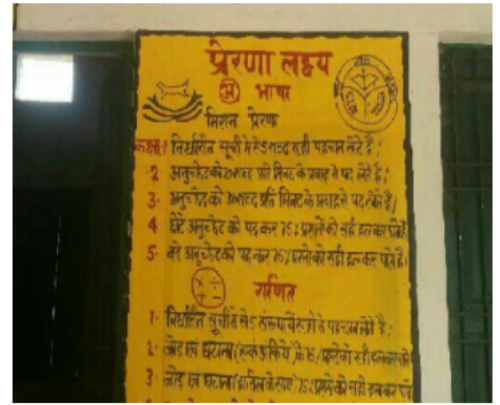 प्रेरणा लक्ष्य
अ भाषा
मिशन प्रेरणा
कक्षा 1 निर्धारित सूची में से 5 शब्द सही पहचान लेते है।
2 अनुच्छेद को 20 शब्द प्रति मिनट के प्रवाह से पढ़ लेते है।
3. अनुच्छेद को 30 शब्द प्रति मिनट के प्रवाह से पढ़ लेते है।
4 छोटे अनुच्छेद को पढ़ कर 75% प्रश्नों को सही हल कर पाते
5. बड़े अनुच्छेद को पढ़ कर 75% प्रश्नों को सही हल कर पाते है।
गणित
1. निर्धारित सूची में से 5 संख्यायें सही से पहचान लेते है।
2. जोड़ एवं घटाना (एक अंकीय) के 75% प्रश्नों को सही हल कर पाते
3. जोड़ एवं घटाना (हासिल के साथ) 75% प्रश्नों को सही हल कर पाते